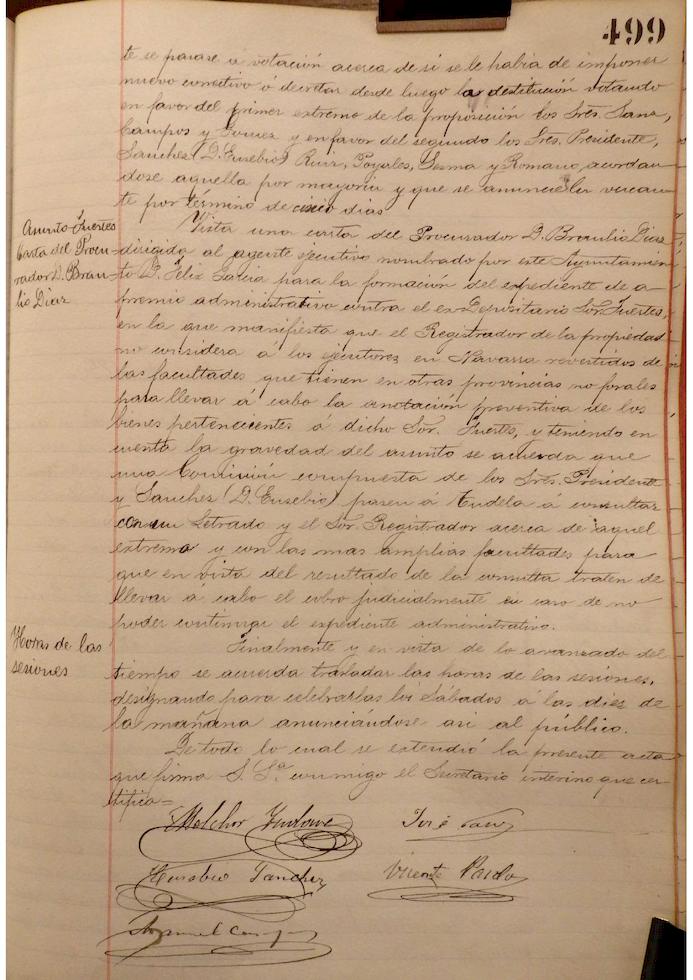 499
te se parase á votación acerca de si se le había de imponer
nuevo correctivo ó decretar desde luego la destitución votando
en favor del primer extremo de la proposición los Sres. Sanz,
Campos y Gomez y en favor del segundo los Sres. Presidente,
Sanchez (D. Eusebio) Ruiz, Pozales, Lesma y Romano, acordan-
dose aquella por mayoria y que se anuncie la vacan-
te por término de cinco dias
Asunto Fuertes
Carta del Procu-
rador D. Brau-
lio Diaz
Vista una carta del Procurador D. Braulio Diaz
dirigida al agente ejecutivo nombrado por este Ayuntamien-
to D. Felix Garcia para la formación del expediente de a-
premio administrativo contra el ex-Depositario Sor. Fuertes,
en la que manifiesta que el Registrador de la propiedad
no considera á los ejecutores en Navarra revestidos de
las facultades que tienen en otras provincias no forales
para llevar á cabo la anotación preventiva de los
bienes pertenecientes á dicho Sor. Fuertes, y teniendo en
cuenta la gravedad del asunto se acuerda que
una Comisión compuesta de los Sres. Presidente
y Sanchez (D. Eusebio) pasen á Tudela á consultar
con un Letrado y el Sor. Registrador acerca de aquel
extremo y con las mas amplias facultades para
que en vista del resultado de la consulta traten de
llevar á cabo el cobro judicialmente en caso de no
poder continuar el expediente administrativo.
Horas de las
sesiones
Finalmente y en vista de lo avanzado del
tiempo se acuerda trasladar las horas de las sesiones,
designando para celebrarlas los Sábados á las diez de
la mañana anunciándose asi al público.
De todo lo cual se extendió la presente acta
que firma S. Sª conmigo el Secretario interino que cer-
tifico=
Melchor
José Sanz
Eusebio Sanchez
Vicente
Manuel Campos